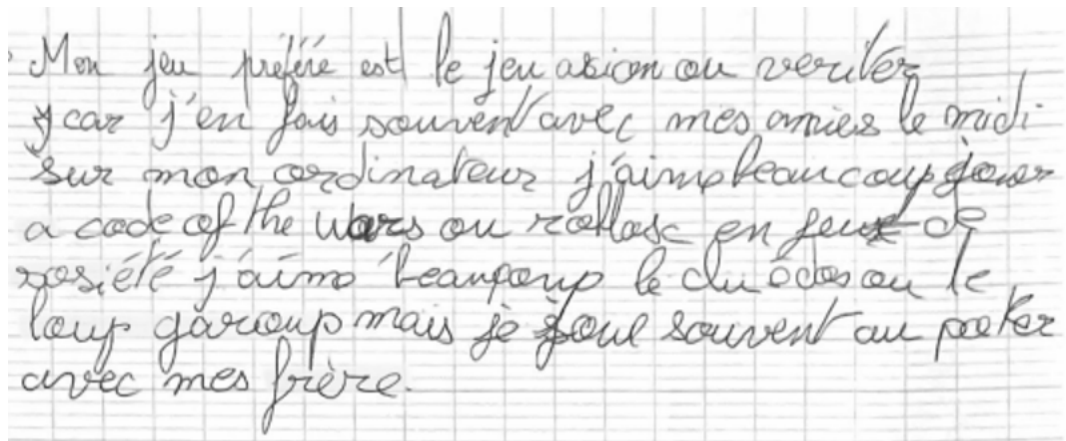 Mon jeu préféré est le jeu axion ou veriter
car j'en fais souvent avec mes amies le midi
sur mon ordinateur j'aime beaucoup jouer
a code of the wars ou roblox en jeux de
rosiété j'aime beaucoup le cluédos ou le
loup garoup mais je joue souvent au poker
avec mes frère.